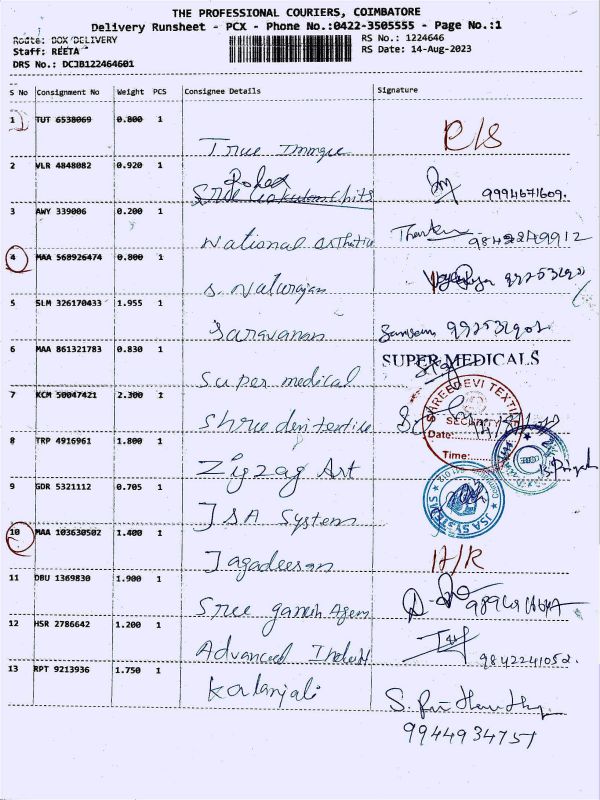 THE PROFESSIONAL COURIERS, COIMBATORE
Delivery Runsheet - PCX - Phone No.:0422-3505555 - Page No.:1
Route: BOX DELIVERY
RS No.: 1224646
Staff: REETA
RS Date: 14-Aug-2023
DRS No.: DCJB122464601
S No Consignment No Weight PCS Consignee Details Signature
1 TUT 6538069 0.800 1
True Image
2 VLR 4848082 0.920 1
Sree Gokulam Chits 9994671609.
3 AWY 339006 0.200 1
National 9842249912
4 MAA 568926474 0.800 1
S. Naturajan
5 SLM 326170433 1.955 1
Saravanan
6 MAA 861321783 0.830 1
SUPER MEDICALS
Super medical
7 KCM 50047421 2.300 1
Shree devi textile
SHREEDEVI TEXTILE
SECURITY
Date:
Time:
8 TRP 4916961 1.800 1
Zigzag Art
9 GDR 5321112 0.705 1
JSA System
JSA SYSTEMS
10 MAA 103630502 1.400 1
Jagadeesan
11 DBU 1369830 1.900 1
Sree ganesh Agen
12 HSR 2786642 1.200 1
Advanced 9842241052.
13 RPT 9213936 1.750 1
Kalanjali
9944934751